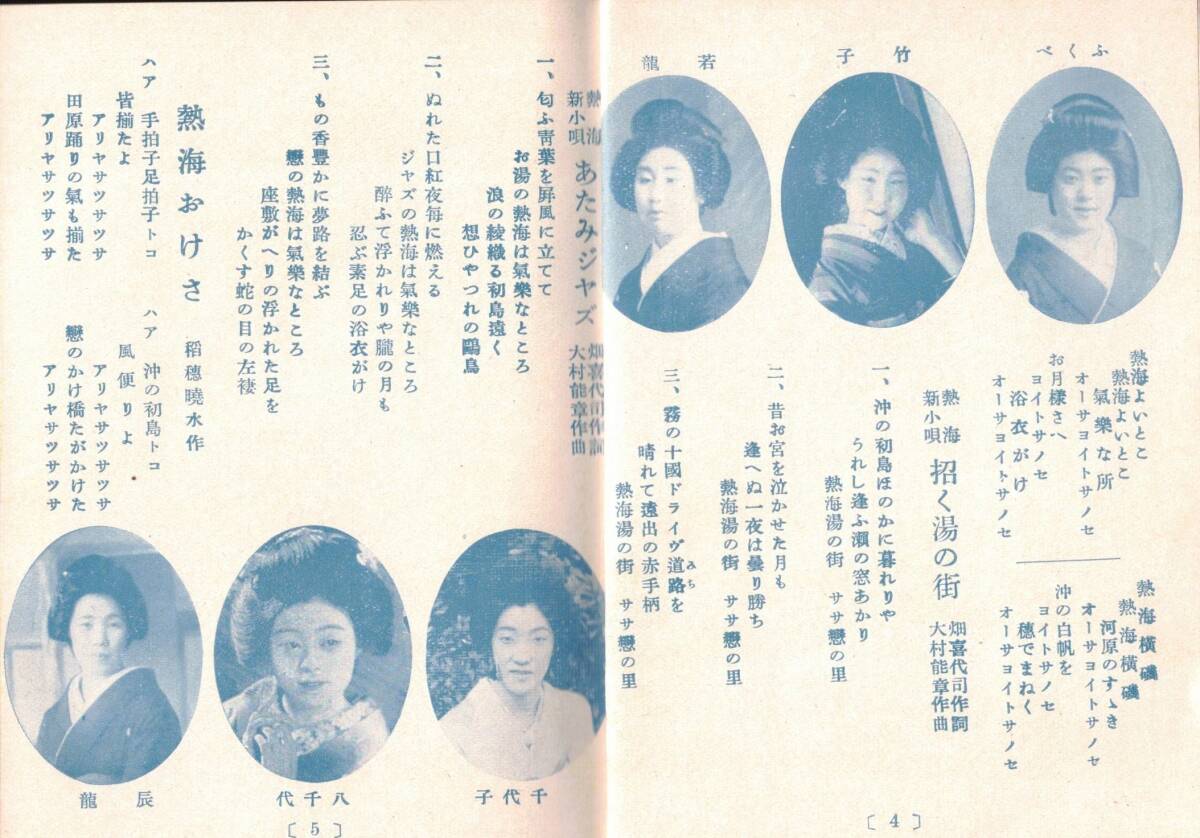 ふくべ
竹子
若龍
熱海よいとこ
熱海よいとこ
氣樂な所
オーサヨイトサノセ
お月樣さへ
ヨイトサノセ
浴衣がけ
オーサヨイトサノセ
熱海橫磯
熱海橫磯
河原のすゝき
オーサヨイトサノセ
沖の白帆を
ヨイトサノセ
穗でまねく
オーサヨイトサノセ
熱海新小唄 招く湯の街 畑喜代司作詞 大村能章作曲
一、沖の初島ほのかに暮れりや
うれし逢ふ瀨の窓あかり
熱海湯の街 ササ戀の里
二、昔お宮を泣かせた月も
逢へぬ一夜は曇り勝ち
熱海湯の街 ササ戀の里
三、霧の十國ドライヴ道路を
みち
晴れて遠出の赤手柄
熱海湯の街 ササ戀の里
〔4〕
熱海新小唄 あたみジヤズ 畑喜代司作詞 大村能章作曲
一、匂ふ靑葉を屛風に立てて
お湯の熱海は氣樂なところ
浪の綾織る初島遠く
想ひやつれの鷗鳥
二、ぬれた口紅夜每に燃える
ジヤズの熱海は氣樂なところ
醉ふて浮かれりや朧の月も
忍ぶ素足の浴衣がけ
三、もの香豐かに夢路を結ぶ
戀の熱海は氣樂なところ
座敷がへりの浮かれた足を
かくす蛇の目の左褄
熱海おけさ 稻穗曉水作
ハア 手拍子足拍子トコ
皆揃たよ
アリヤサツササ
田原踊りの氣も揃た
アリヤサツササ
ハア 沖の初島トコ
風便りよ
アリヤサツササ
戀のかけ橋たがかけた
アリヤサツササ
千代子
八千代
辰龍
〔5〕